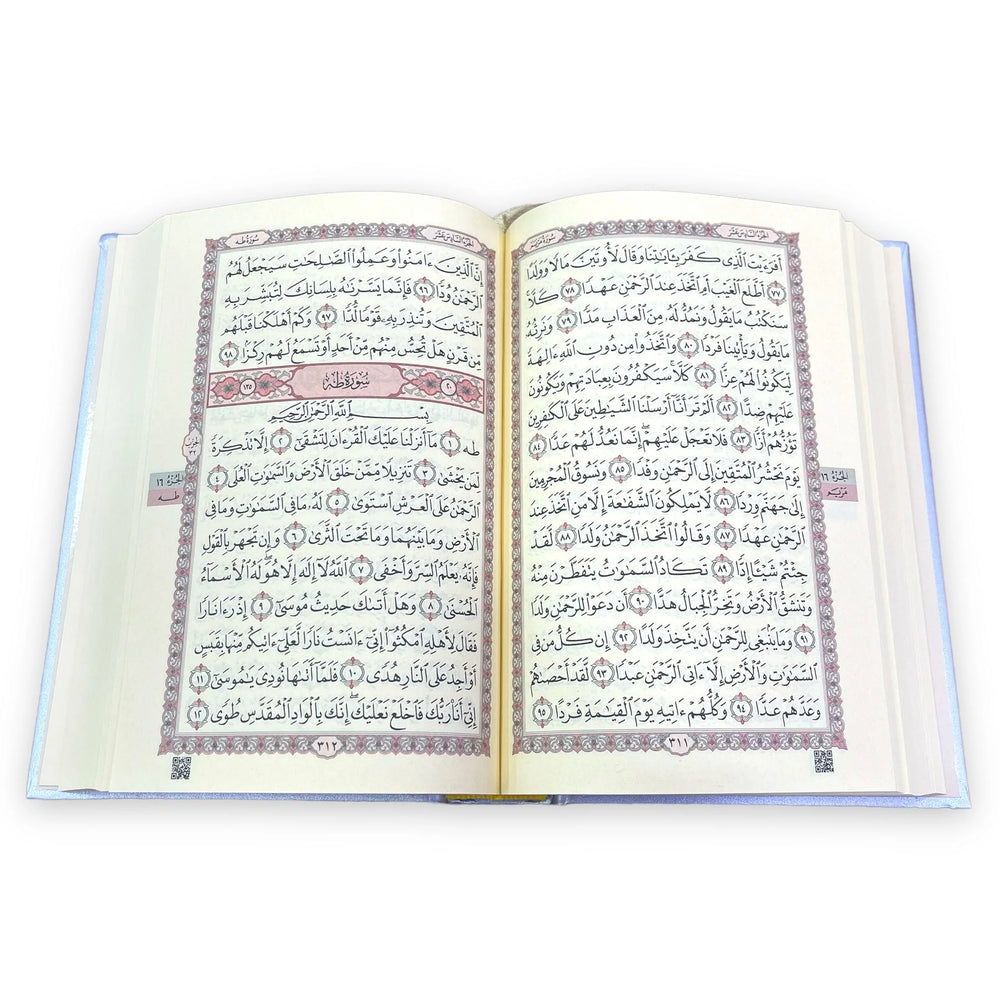 الجزء السادس عشر
سورة مريم
أَفَرَءَيْتَ ٱلَّذِى كَفَرَ بِـَٔايَٰتِنَا وَقَالَ لَأُوتَيَنَّ مَالًا وَوَلَدًا
﴿٧٧﴾ أَطَّلَعَ ٱلْغَيْبَ أَمِ ٱتَّخَذَ عِندَ ٱلرَّحْمَٰنِ عَهْدًا ﴿٧٨﴾ كَلَّا
سَنَكْتُبُ مَا يَقُولُ وَنَمُدُّ لَهُۥ مِنَ ٱلْعَذَابِ مَدًّا ﴿٧٩﴾ وَنَرِثُهُۥ
مَا يَقُولُ وَيَأْتِينَا فَرْدًا ﴿٨٠﴾ وَٱتَّخَذُوا۟ مِن دُونِ ٱللَّهِ ءَالِهَةً
لِّيَكُونُوا۟ لَهُمْ عِزًّا ﴿٨١﴾ كَلَّا سَيَكْفُرُونَ بِعِبَادَتِهِمْ وَيَكُونُونَ
عَلَيْهِمْ ضِدًّا ﴿٨٢﴾ أَلَمْ تَرَ أَنَّآ أَرْسَلْنَا ٱلشَّيَٰطِينَ عَلَى ٱلْكَٰفِرِينَ
تَؤُزُّهُمْ أَزًّا ﴿٨٣﴾ فَلَا تَعْجَلْ عَلَيْهِمْ ۖ إِنَّمَا نَعُدُّ لَهُمْ عَدًّا ﴿٨٤﴾
يَوْمَ نَحْشُرُ ٱلْمُتَّقِينَ إِلَى ٱلرَّحْمَٰنِ وَفْدًا ﴿٨٥﴾ وَنَسُوقُ ٱلْمُجْرِمِينَ
إِلَىٰ جَهَنَّمَ وِرْدًا ﴿٨٦﴾ لَّا يَمْلِكُونَ ٱلشَّفَٰعَةَ إِلَّا مَنِ ٱتَّخَذَ عِندَ
ٱلرَّحْمَٰنِ عَهْدًا ﴿٨٧﴾ وَقَالُوا۟ ٱتَّخَذَ ٱلرَّحْمَٰنُ وَلَدًا ﴿٨٨﴾ لَّقَدْ
جِئْتُمْ شَيْـًٔا إِدًّا ﴿٨٩﴾ تَكَادُ ٱلسَّمَٰوَٰتُ يَتَفَطَّرْنَ مِنْهُ
وَتَنشَقُّ ٱلْأَرْضُ وَتَخِرُّ ٱلْجِبَالُ هَدًّا ﴿٩٠﴾ أَن دَعَوْا۟ لِلرَّحْمَٰنِ وَلَدًا
﴿٩١﴾ وَمَا يَنۢبَغِى لِلرَّحْمَٰنِ أَن يَتَّخِذَ وَلَدًا ﴿٩٢﴾ إِن كُلُّ مَن فِى
ٱلسَّمَٰوَٰتِ وَٱلْأَرْضِ إِلَّآ ءَاتِى ٱلرَّحْمَٰنِ عَبْدًا ﴿٩٣﴾ لَّقَدْ أَحْصَىٰهُمْ
وَعَدَّهُمْ عَدًّا ﴿٩٤﴾ وَكُلُّهُمْ ءَاتِيهِ يَوْمَ ٱلْقِيَٰمَةِ فَرْدًا ﴿٩٥﴾
٣١١
الجزء ١٦
مريم
الجزء السادس عشر
سورة طه
إِنَّ ٱلَّذِينَ ءَامَنُوا۟ وَعَمِلُوا۟ ٱلصَّٰلِحَٰتِ سَيَجْعَلُ لَهُمُ
ٱلرَّحْمَٰنُ وُدًّا ﴿٩٦﴾ فَإِنَّمَا يَسَّرْنَٰهُ بِلِسَانِكَ لِتُبَشِّرَ بِهِ
ٱلْمُتَّقِينَ وَتُنذِرَ بِهِۦ قَوْمًا لُّدًّا ﴿٩٧﴾ وَكَمْ أَهْلَكْنَا قَبْلَهُم
مِّن قَرْنٍ هَلْ تُحِسُّ مِنْهُم مِّنْ أَحَدٍ أَوْ تَسْمَعُ لَهُمْ رِكْزًۢا ﴿٩٨﴾
٢٠ سُورَةُ طه ١٣٥
بِسْمِ ٱللَّهِ ٱلرَّحْمَٰنِ ٱلرَّحِيمِ
طه ﴿١﴾ مَآ أَنزَلْنَا عَلَيْكَ ٱلْقُرْءَانَ لِتَشْقَىٰٓ ﴿٢﴾ إِلَّا تَذْكِرَةً
لِّمَن يَخْشَىٰ ﴿٣﴾ تَنزِيلًا مِّمَّنْ خَلَقَ ٱلْأَرْضَ وَٱلسَّمَٰوَٰتِ ٱلْعُلَى ﴿٤﴾
ٱلرَّحْمَٰنُ عَلَى ٱلْعَرْشِ ٱسْتَوَىٰ ﴿٥﴾ لَهُۥ مَا فِى ٱلسَّمَٰوَٰتِ وَمَا فِى
ٱلْأَرْضِ وَمَا بَيْنَهُمَا وَمَا تَحْتَ ٱلثَّرَىٰ ﴿٦﴾ وَإِن تَجْهَرْ بِٱلْقَوْلِ
فَإِنَّهُۥ يَعْلَمُ ٱلسِّرَّ وَأَخْفَى ﴿٧﴾ ٱللَّهُ لَآ إِلَٰهَ إِلَّا هُوَ ۖ لَهُ ٱلْأَسْمَآءُ
ٱلْحُسْنَىٰ ﴿٨﴾ وَهَلْ أَتَىٰكَ حَدِيثُ مُوسَىٰٓ ﴿٩﴾ إِذْ رَءَا نَارًا
فَقَالَ لِأَهْلِهِ ٱمْكُثُوٓا۟ إِنِّىٓ ءَانَسْتُ نَارًا لَّعَلِّىٓ ءَاتِيكُم مِّنْهَا بِقَبَسٍ
أَوْ أَجِدُ عَلَى ٱلنَّارِ هُدًى ﴿١٠﴾ فَلَمَّآ أَتَىٰهَا نُودِىَ يَٰمُوسَىٰٓ ﴿١١﴾
إِنِّىٓ أَنَا۠ رَبُّكَ فَٱخْلَعْ نَعْلَيْكَ ۖ إِنَّكَ بِٱلْوَادِ ٱلْمُقَدَّسِ طُوًى ﴿١٢﴾
٣١٢
الحزب
٣٢
الجزء ١٦
طه